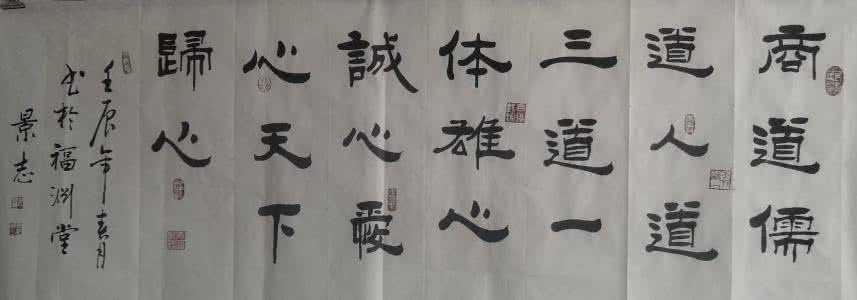 商道儒
道人道
三道一
体雄心
誠心愛
心天下
歸心
壬辰年春月
书於福渊堂
景志